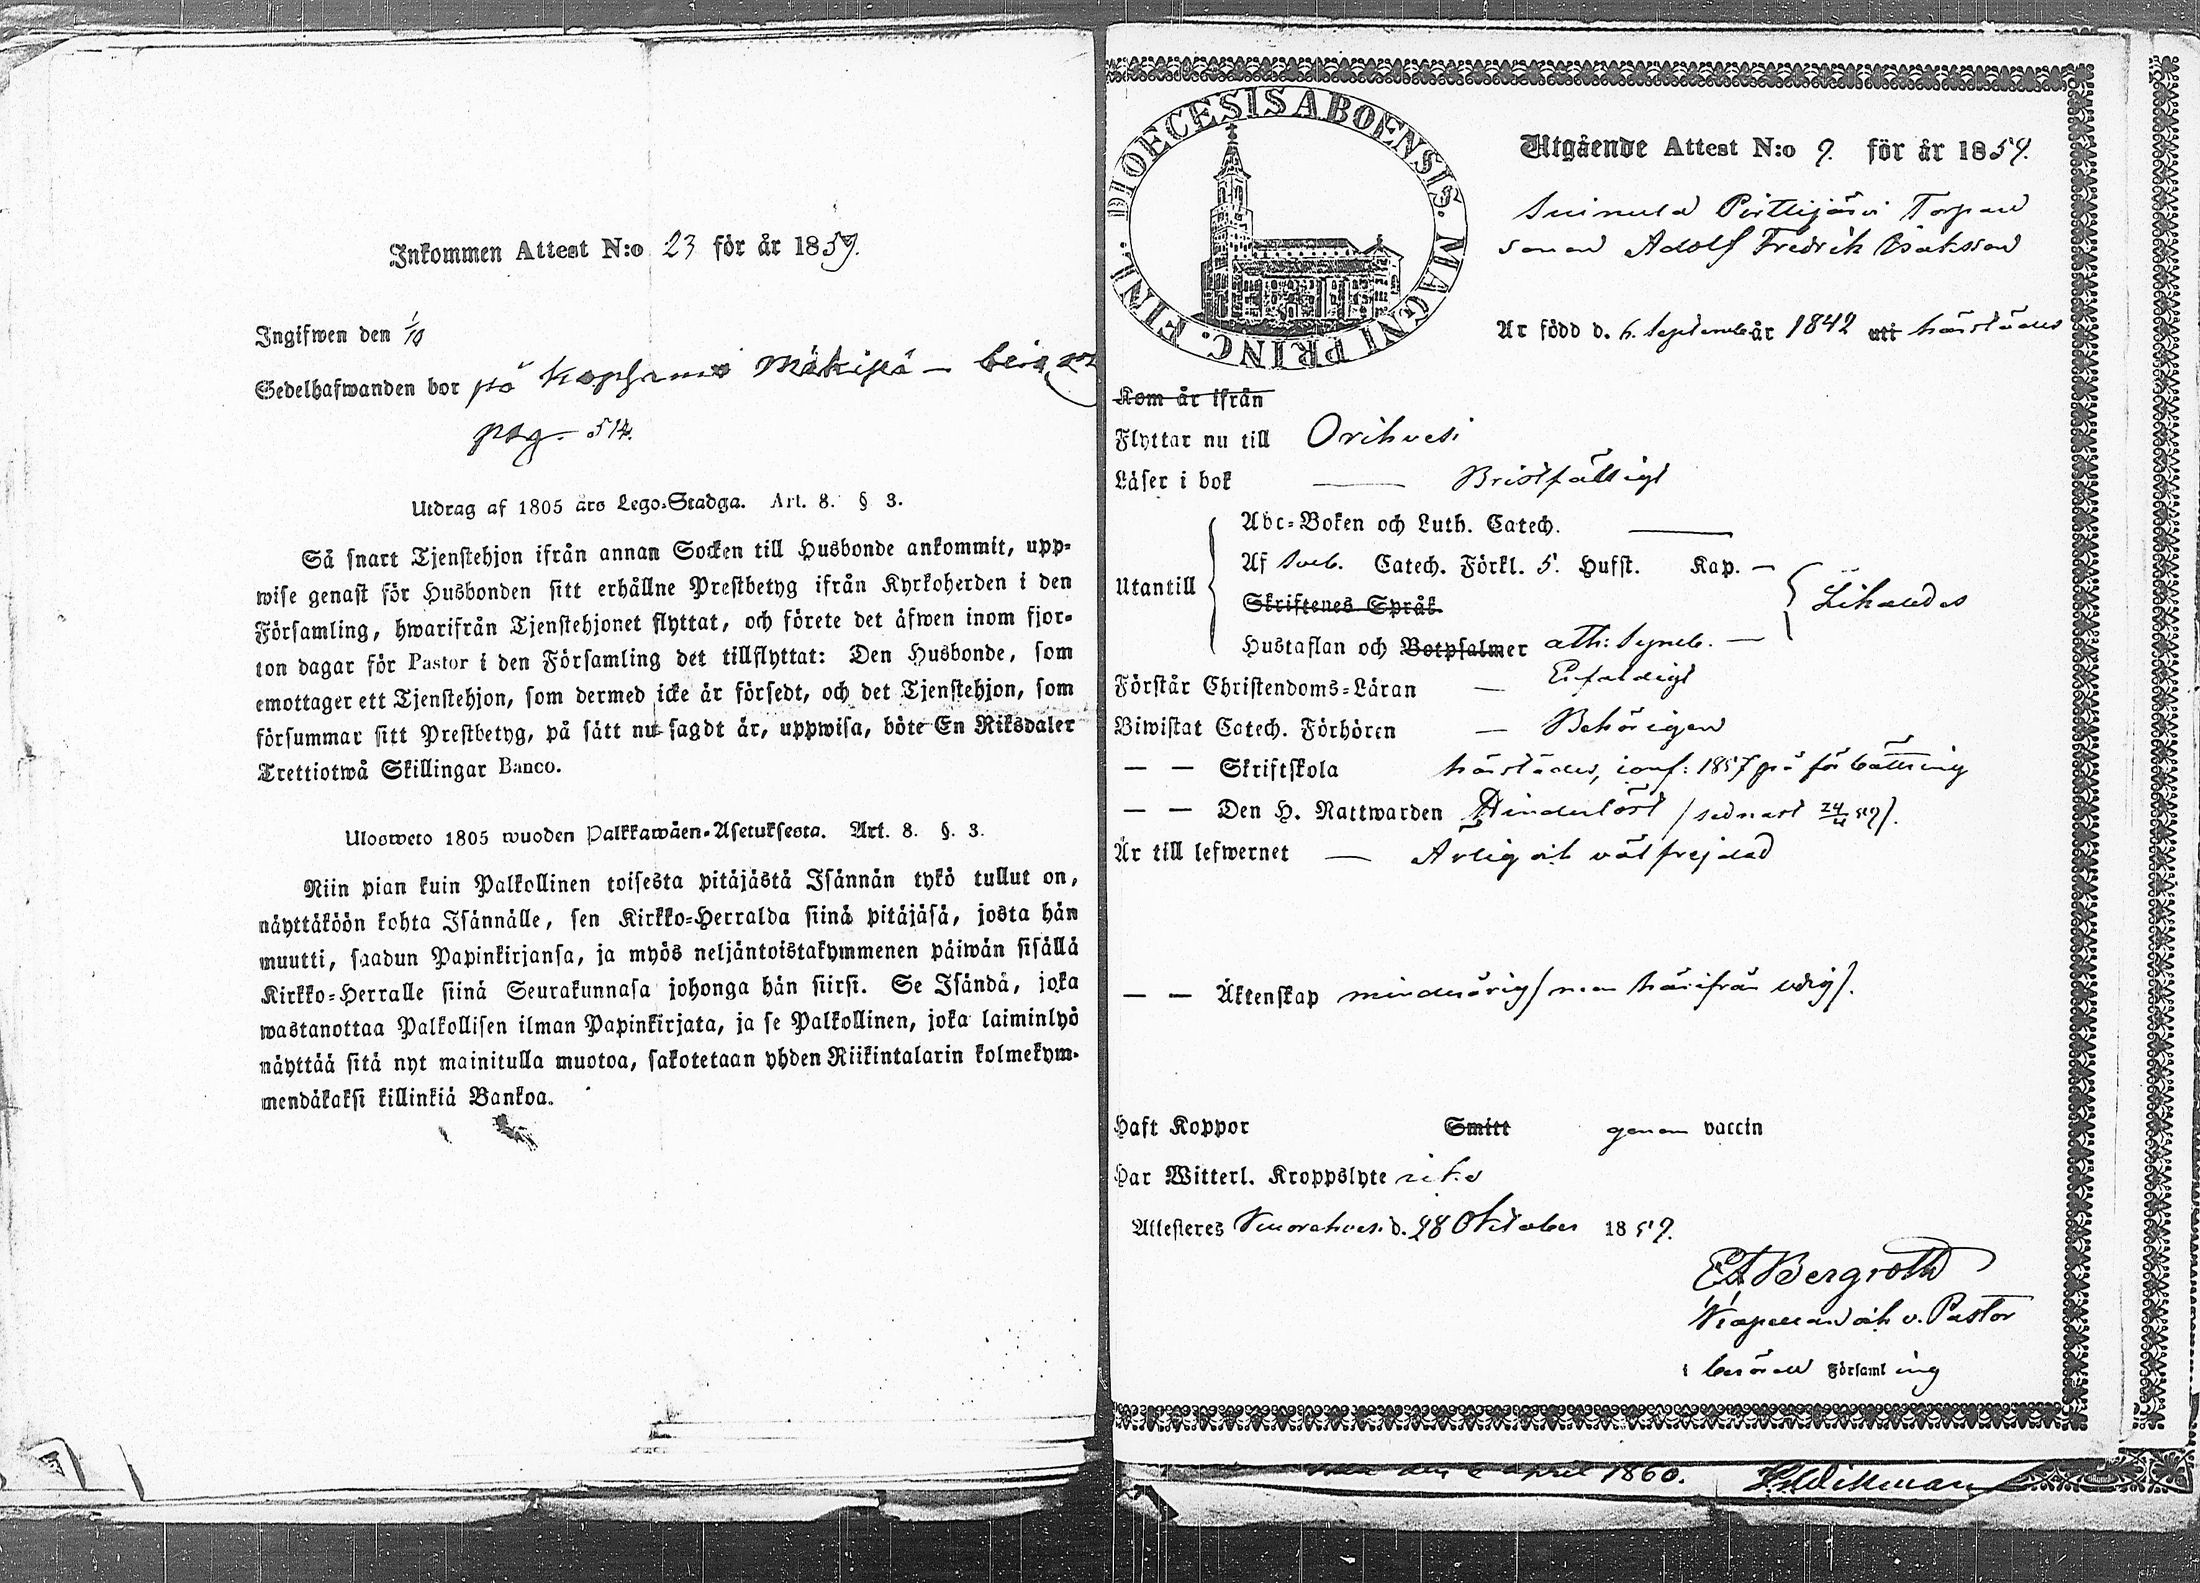 Inkommen Attest N:o 23 för år 1859.
Ingifwen den 1/10
Sedelhafwanden bor på Mäkipä
pag. 514.
Utdrag af 1805 års Lego-Stadga. Art. 8. § 3.
Så snart Tjenstehjon ifrån annan Socken till Husbonde ankommit, upp-
wise genast för Husbonden sitt erhållne Prestbetyg ifrån Kyrkoherden i den
Församling, hwarifrån Tjenstehjonet flyttat, och förete det äfwen inom fjor-
ton dagar för Pastor i den Församling det tillflyttat: Den Husbonde, som
emottager ett Tjenstehjon, som dermed icke är försedt, och det Tjenstehjon, som
försummar sitt Prestbetyg, på sätt nu sagdt är, uppwisa, böte En Riksdaler
Trettiotwå Skillingar Banco.
Ulosweto 1805 wuoden Palkkawäen-Asetuksesta. Art. 8. §. 3.
Niin pian kuin Palkollinen toisesta pitäjästä Isännän tykö tullut on,
näyttäköön kohta Isännälle, sen Kirkko-Herralda siinä pitäjäsä, josta hän
muutti, saadun Papinkirjansa, ja myös neljäntoistakymmenen päiwän sisällä
Kirkko-Herralle siinä Seurakunnasa johonga hän siirsi. Se Isändä, joka
wastanottaa Palkollisen ilman Papinkirjata, ja se Palkollinen, joka laiminlyö
näyttää sitä nyt mainitulla muotoa, sakotetaan yhden Riikintalarin kolmekym-
mendäkaksi killinkiä Bankoa.
DIOECESIS ABOENSIS. MAGNI PRINC. FINL.
Utgående Attest N:o 9. för år 1859.
Suinula Pitkäjärvi Torpare
sonen Adolf Fredrik Isaksson
Är född d. 6. September år 1842 uti härstädes
Kom år ifrån
Flyttar nu till Orihvesi
Läser i bok — Bristfälligt
Abc-Boken och Luth. Catech. —
Utantill Af Sveb. Catech. Förkl. 5. Hufst. Kap. — Likaledes
Skriftenes Språk.
Hustaflan och Botpsalmer ath: Symb. —
Förstår Christendoms-Läran — Enfaldigt
Biwistat Catech. Förhören — Behörigen
— — Skriftskola härstädes, conf: 1857 på förbättring
— — Den H. Nattwarden Hinderlöst (sednast 24/4 59).
Är till lefwernet — Ärlig och väl frejdad
— — Äktenskap minderårig (men härifrån ledig).
Haft Koppor Smitt genom vaccin
Har Witterl. Kroppslyte icke
Attesteres Kuorehvesi d. 28 Oktober 1859.
EA Bergroth
Kapellan och v. Pastor
i berörde Församl ing
april 1860.